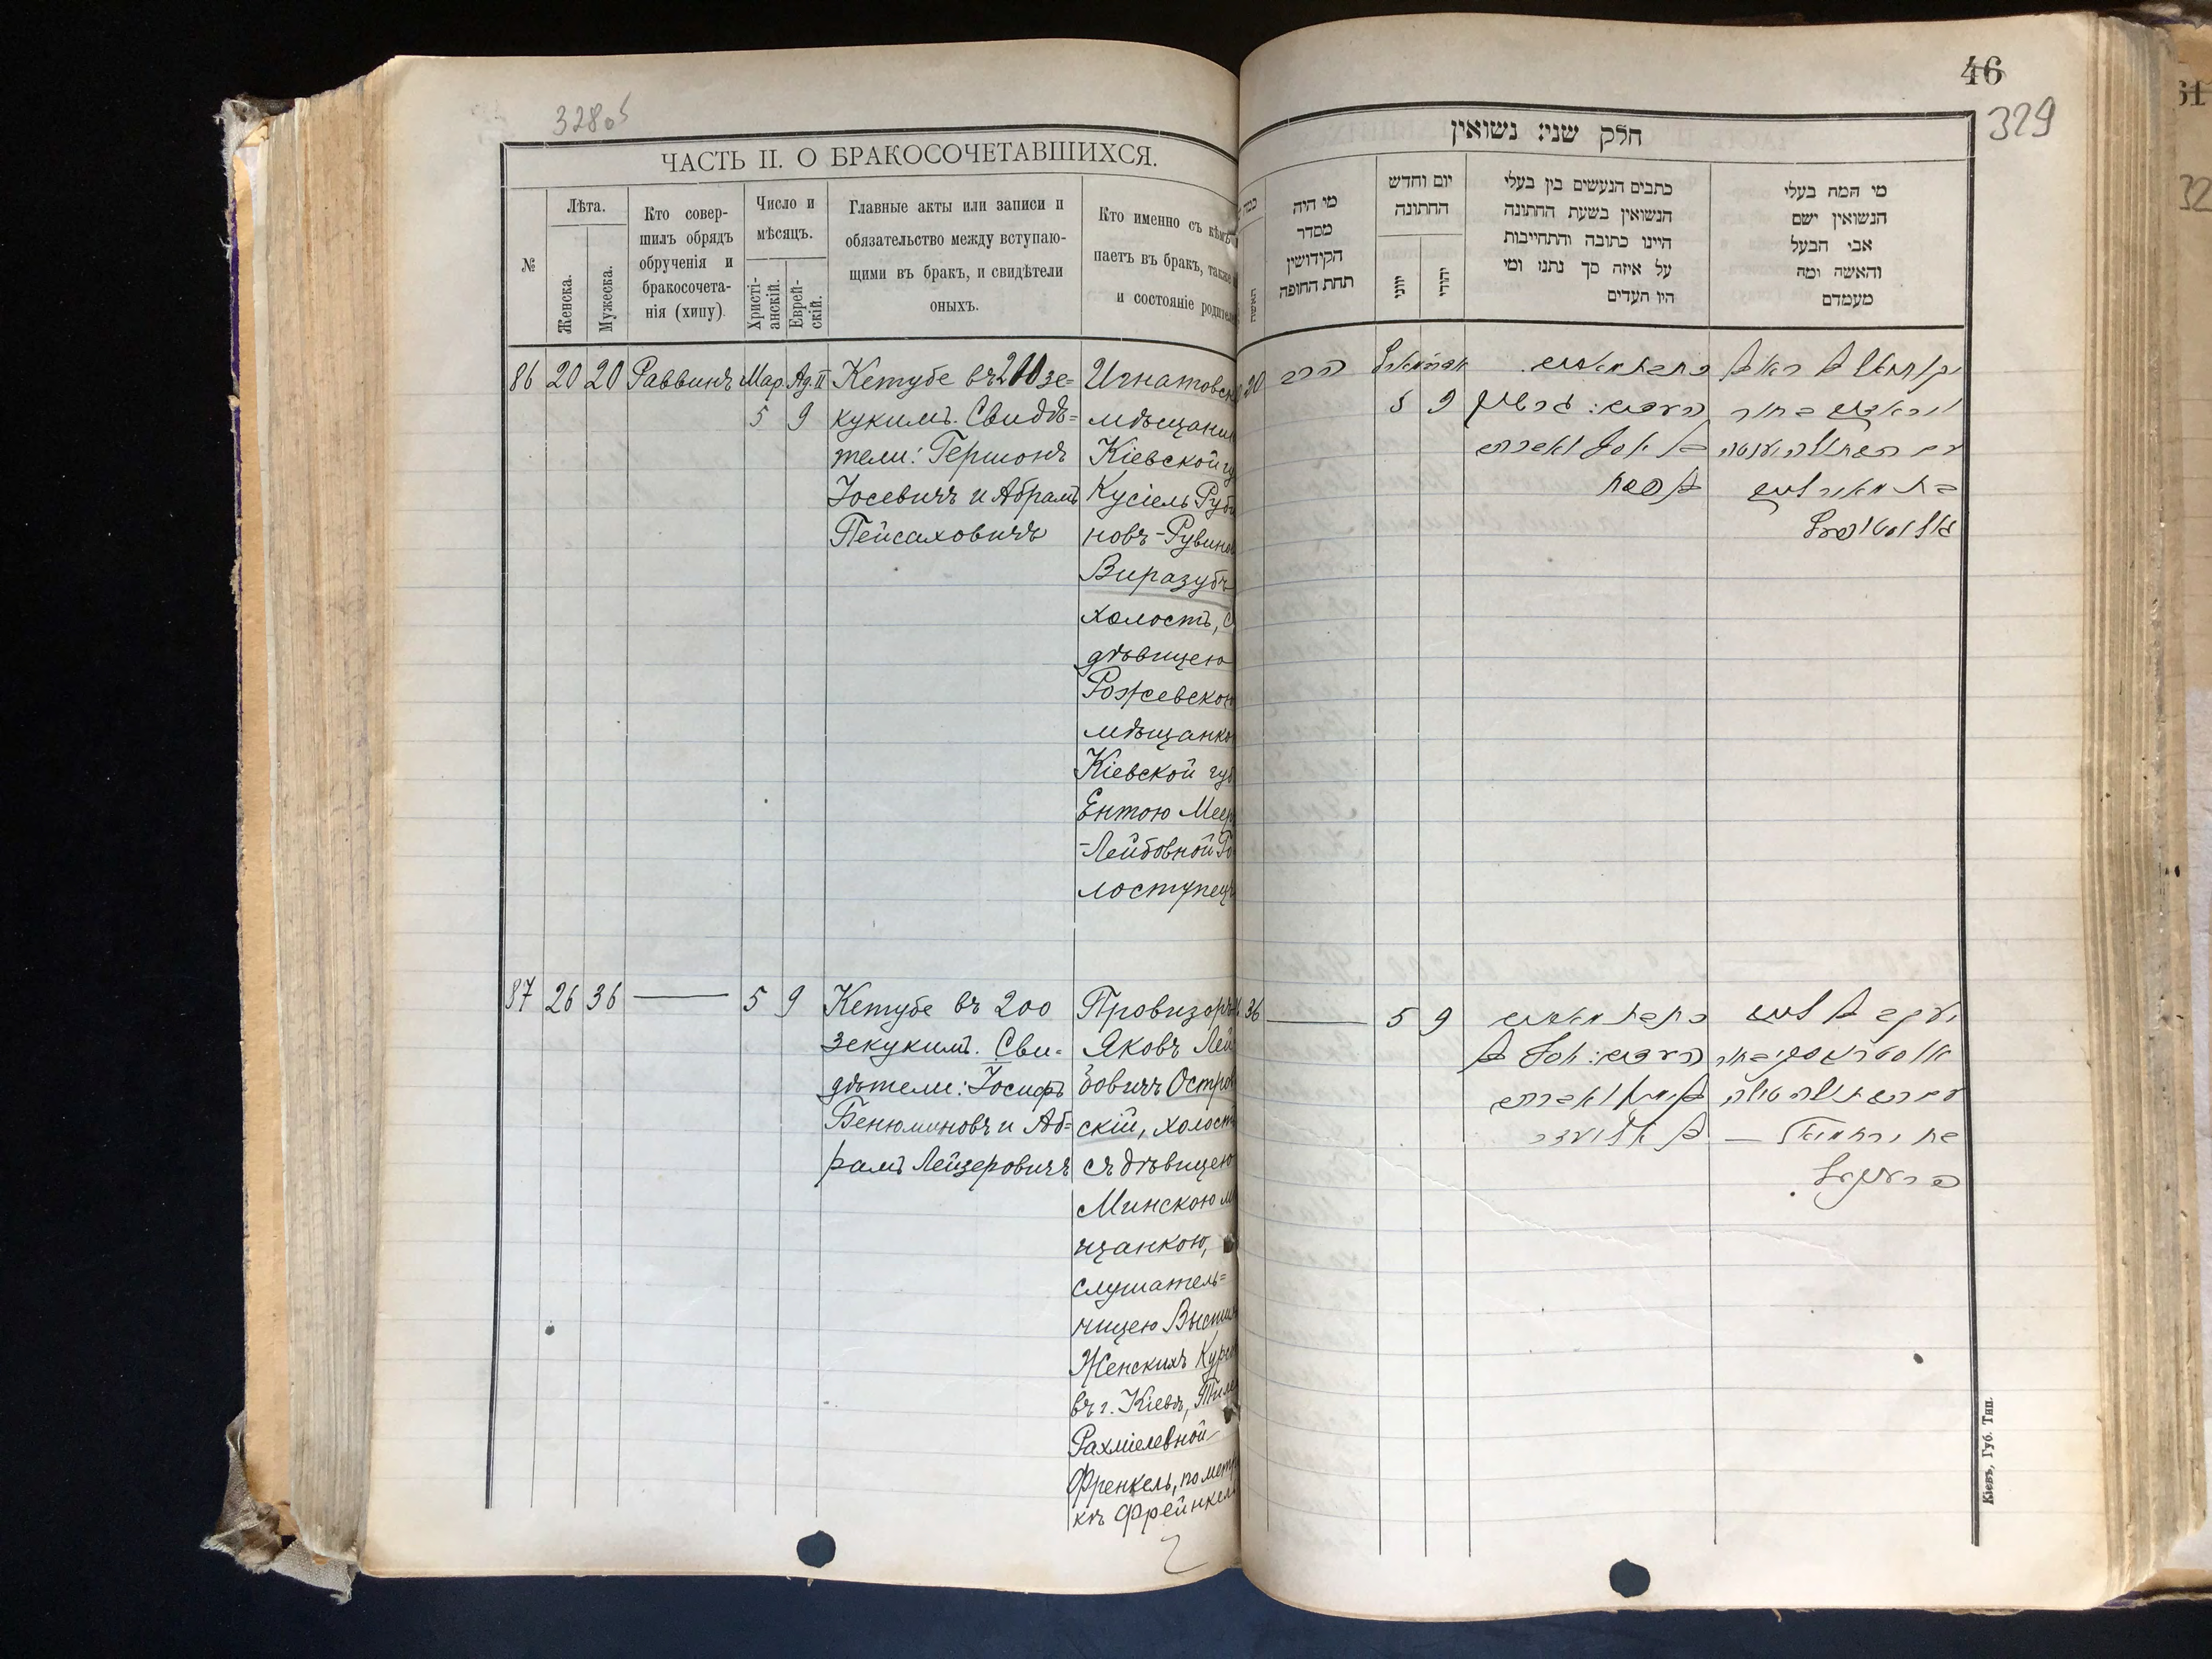 328об
ЧАСТЬ II. О БРАКОСОЧЕТАВШИХСЯ.
№
Лѣта.
Женска.
Мужеска.
Кто совер-
шилъ обрядъ
обрученія и
бракосочета-
нія (хипу).
Число и
мѣсяцъ.
Христі-
анскій.
Еврей-
скій.
Главные акты или записи и
обязательство между вступаю-
щими въ бракъ, и свидѣтели
оныхъ.
Кто именно съ кѣмъ
паетъ въ бракъ, также
и состояніе родител
86 20 20 Раввинъ Мар. Ад. II
5 9
Кетубе въ 200 зе=
кукимъ. Свидѣ=
тели: Гершонъ
Іосевичъ и Абрамъ
Пейсаховичъ
Игнатовск
мѣщанин
Кіевской гу
Кусіель Руби
новъ-Рувино
Виразубъ
холостъ, с
дѣвицею
Рожевскою
мѣщанко
Кіевской губ
Ентою Меер
-Лейбовной Го
лоступецъ
87 26 36 — 5 9
Кетубе въ 200
зекукимъ. Сви-
дѣтели: Іосифъ
Бенюминовъ и Аб=
рамъ Лейзеровичъ
Провизоръ
Яковъ Лей
бовичъ Остров
скій, холостъ
съ дѣвицею
Минскою м
щанкою,
слушатель=
ницею Высши
Женскихъ Курс
въ г. Кіевѣ,
Рахміелевной
Френкель, по метр
кѣ Фрейнкел
46
329
חלק שני: נשואין
האשה
מי היה
מסדר
הקידושין
תחת החופה
יום וחדש
החתונה
יוני
יהודי
כתבים הנעשים בין בעלי
הנשואין בשעת החתונה
היינו כתובה והתחייבות
על איזה סך נתנו ומי
היו העדים
מי המה בעלי
הנשואין ושם
אבי הבעל
והאשה ומה
מעמדם
20 הרב
5 9
העדים: גרשון
בן יוסף ואברהם
בן פסח
עם הבתולה יענטה
36 — 5 9
העדים: יוסף בן
בנימין ואברהם
בן אליעזר
יעקב בן ליב
אוסטראווסקי בחור
עם הבתולה
בת ירחמיאל
פרענקעל
Кіевъ, Губ. Тип.